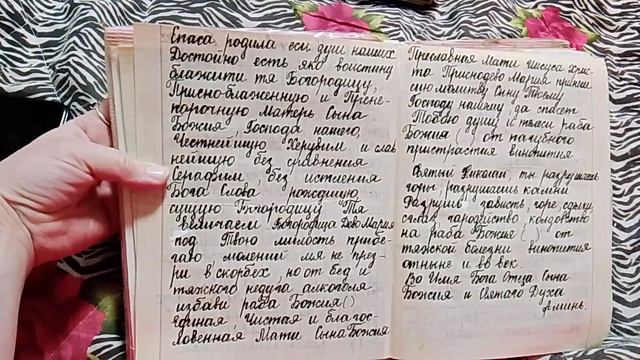 Спаса родила еси душ наших
Достойно есть яко воистину
блажити тя Богородицу,
Присно-блаженную и Прене-
порочную Матерь Сына
Божия, Господа нашего,
Честнейшую Херувим и слав
нейшую без сравнения
Серафим, без истления
Бога Слова рождшую,
сущую Богородицу Тя
величаем Богородица Дево Мария
под Твою милость прибе-
гаю молений мя не през-
ри в скорбех, но от бед и
тяжкого недуга алкоголя
избави раба Божия()
единая Чистая и благос-
ловенная Мати Сына Божия
Приславная Мати Иисуса Хрис-
та Приснодево Мария принеси
сию молитву Сыну Твоему
Господу нашему да спасет
Тобою душу и тело раба
Божия ( ) от пагубного
пристрастия винопития.
Святый Николай, ты разрушаешь
горы, разрушаешь камни
Разрушь зависть, горе,
чародейство колдовство
на раба Божие ( ) от
тяжской болезни винопития
отныне и во век.
Во Имя Бога Отца Сына
Божия и Святаго Духа
Аминь.